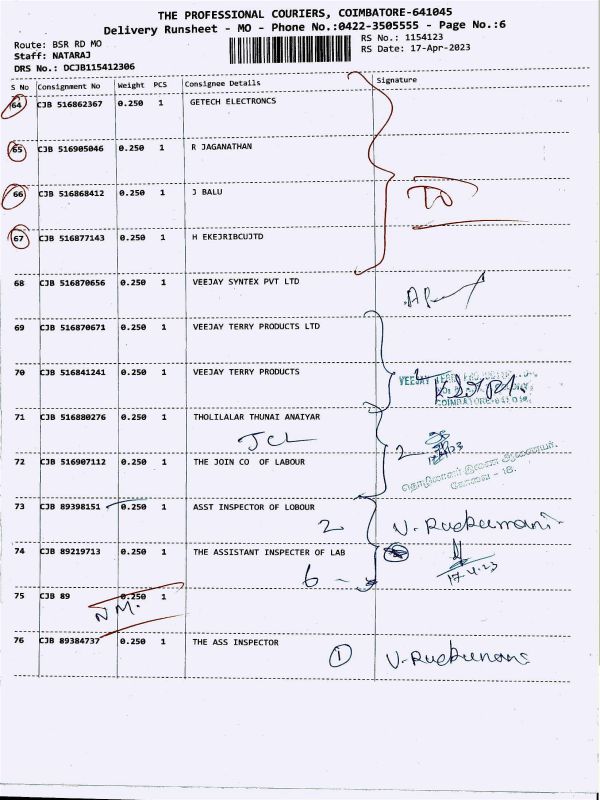 THE PROFESSIONAL COURIERS, COIMBATORE-641045
Delivery Runsheet - MO - Phone No.:0422-3505555 - Page No.:6
Route: BSR RD MO RS No.: 1154123
Staff: NATARAJ RS Date: 17-Apr-2023
DRS No.: DCJB115412306
S No Consignment No Weight PCS Consignee Details Signature
64 CJB 516862367 0.250 1 GETECH ELECTRONCS
65 CJB 516905046 0.250 1 R JAGANATHAN
66 CJB 516868412 0.250 1 J BALU
67 CJB 516877143 0.250 1 H EKEJRIBCUJTD
68 CJB 516870656 0.250 1 VEEJAY SYNTEX PVT LTD
69 CJB 516870671 0.250 1 VEEJAY TERRY PRODUCTS LTD
70 CJB 516841241 0.250 1 VEEJAY TERRY PRODUCTS
VEEJAY
COIMBATORE
71 CJB 516880276 0.250 1 THOLILALAR THUNAI ANAIYAR
JCL 2
72 CJB 516907112 0.250 1 THE JOIN CO OF LABOUR
தொழிலாளர் இணை ஆணையர்
கோவை - 18.
73 CJB 89398151 0.250 1 ASST INSPECTOR OF LOBOUR
2 V. Rukumani
74 CJB 89219713 0.250 1 THE ASSISTANT INSPECTER OF LAB
6 17.4.23
75 CJB 89 0.250 1
N M.
76 CJB 89384737 0.250 1 THE ASS INSPECTOR
1 V. Rukumani